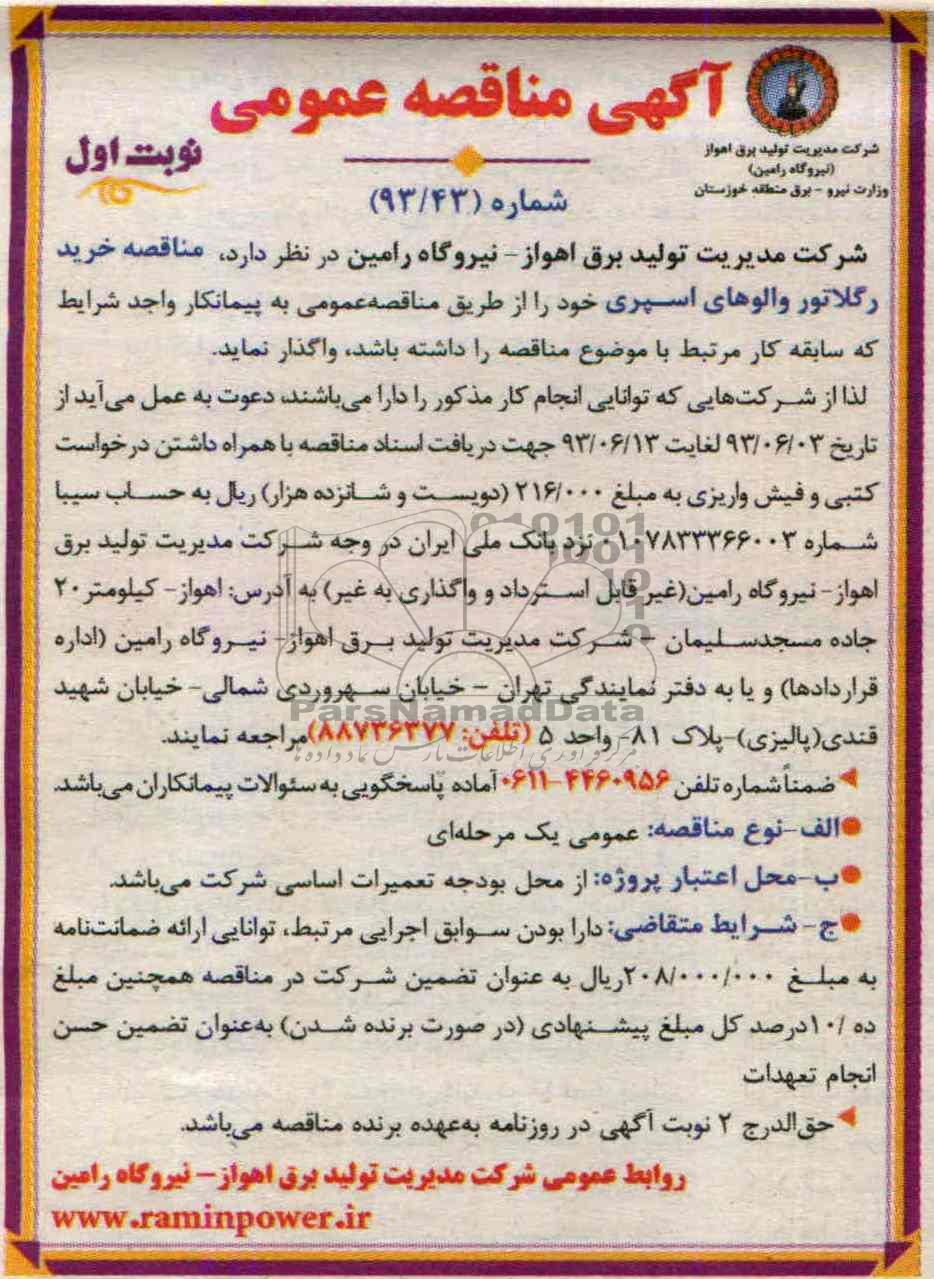 آگهی مناقصه عمومی
نوبت اول
شرکت مدیریت تولید برق اهواز
(نیروگاه رامین)
وزارت نیرو - برق منطقه خوزستان
شماره (۹۳/۴۳)
شرکت مدیریت تولید برق اهواز - نیروگاه رامین در نظر دارد، مناقصه خرید
رگلاتور والوهای اسپری خود را از طریق مناقصه‌عمومی به پیمانکار واجد شرایط
که سابقه کار مرتبط با موضوع مناقصه را داشته باشد، واگذار نماید.
لذا از شرکت‌هایی که توانایی انجام کار مذکور را دارا می‌باشند، دعوت به عمل می‌آید از
تاریخ ۹۳/۰۶/۰۳ لغایت ۹۳/۰۶/۱۳ جهت دریافت اسناد مناقصه با همراه داشتن درخواست
کتبی و فیش واریزی به مبلغ ۲۱۶/۰۰۰ (دویست و شانزده هزار) ریال به حساب سیبا
شماره ۰۱۰۷۸۳۳۳۶۶۰۰۳ نزد بانک ملی ایران در وجه شرکت مدیریت تولید برق
اهواز - نیروگاه رامین(غیر قابل استرداد و واگذاری به غیر) به آدرس: اهواز - کیلومتر ۲۰
جاده مسجدسلیمان - شرکت مدیریت تولید برق اهواز - نیروگاه رامین (اداره
قراردادها) و یا به دفتر نمایندگی تهران - خیابان سهروردی شمالی - خیابان شهید
قندی(پالیزی)-پلاک ۸۱- واحد ۵ (تلفن: ۸۸۷۳۶۳۷۷)مراجعه نمایند.
ضمناً شماره تلفن ۴۴۶۰۹۵۶-۰۶۱۱ آماده پاسخگویی به سئوالات پیمانکاران می‌باشد.
الف-نوع مناقصه: عمومی یک مرحله‌ای
ب-محل اعتبار پروژه: از محل بودجه تعمیرات اساسی شرکت می‌باشد.
ج- شرایط متقاضی: دارا بودن سوابق اجرایی مرتبط، توانایی ارائه ضمانت‌نامه
به مبلغ ۲۰۸/۰۰۰/۰۰۰ریال به عنوان تضمین شرکت در مناقصه همچنین مبلغ
ده /۱۰درصد کل مبلغ پیشنهادی (در صورت برنده شدن) به‌عنوان تضمین حسن
انجام تعهدات
حق‌الدرج ۲ نوبت آگهی در روزنامه به‌عهده برنده مناقصه می‌باشد.
روابط عمومی شرکت مدیریت تولید برق اهواز - نیروگاه رامین
www.raminpower.ir
ParsNamadData